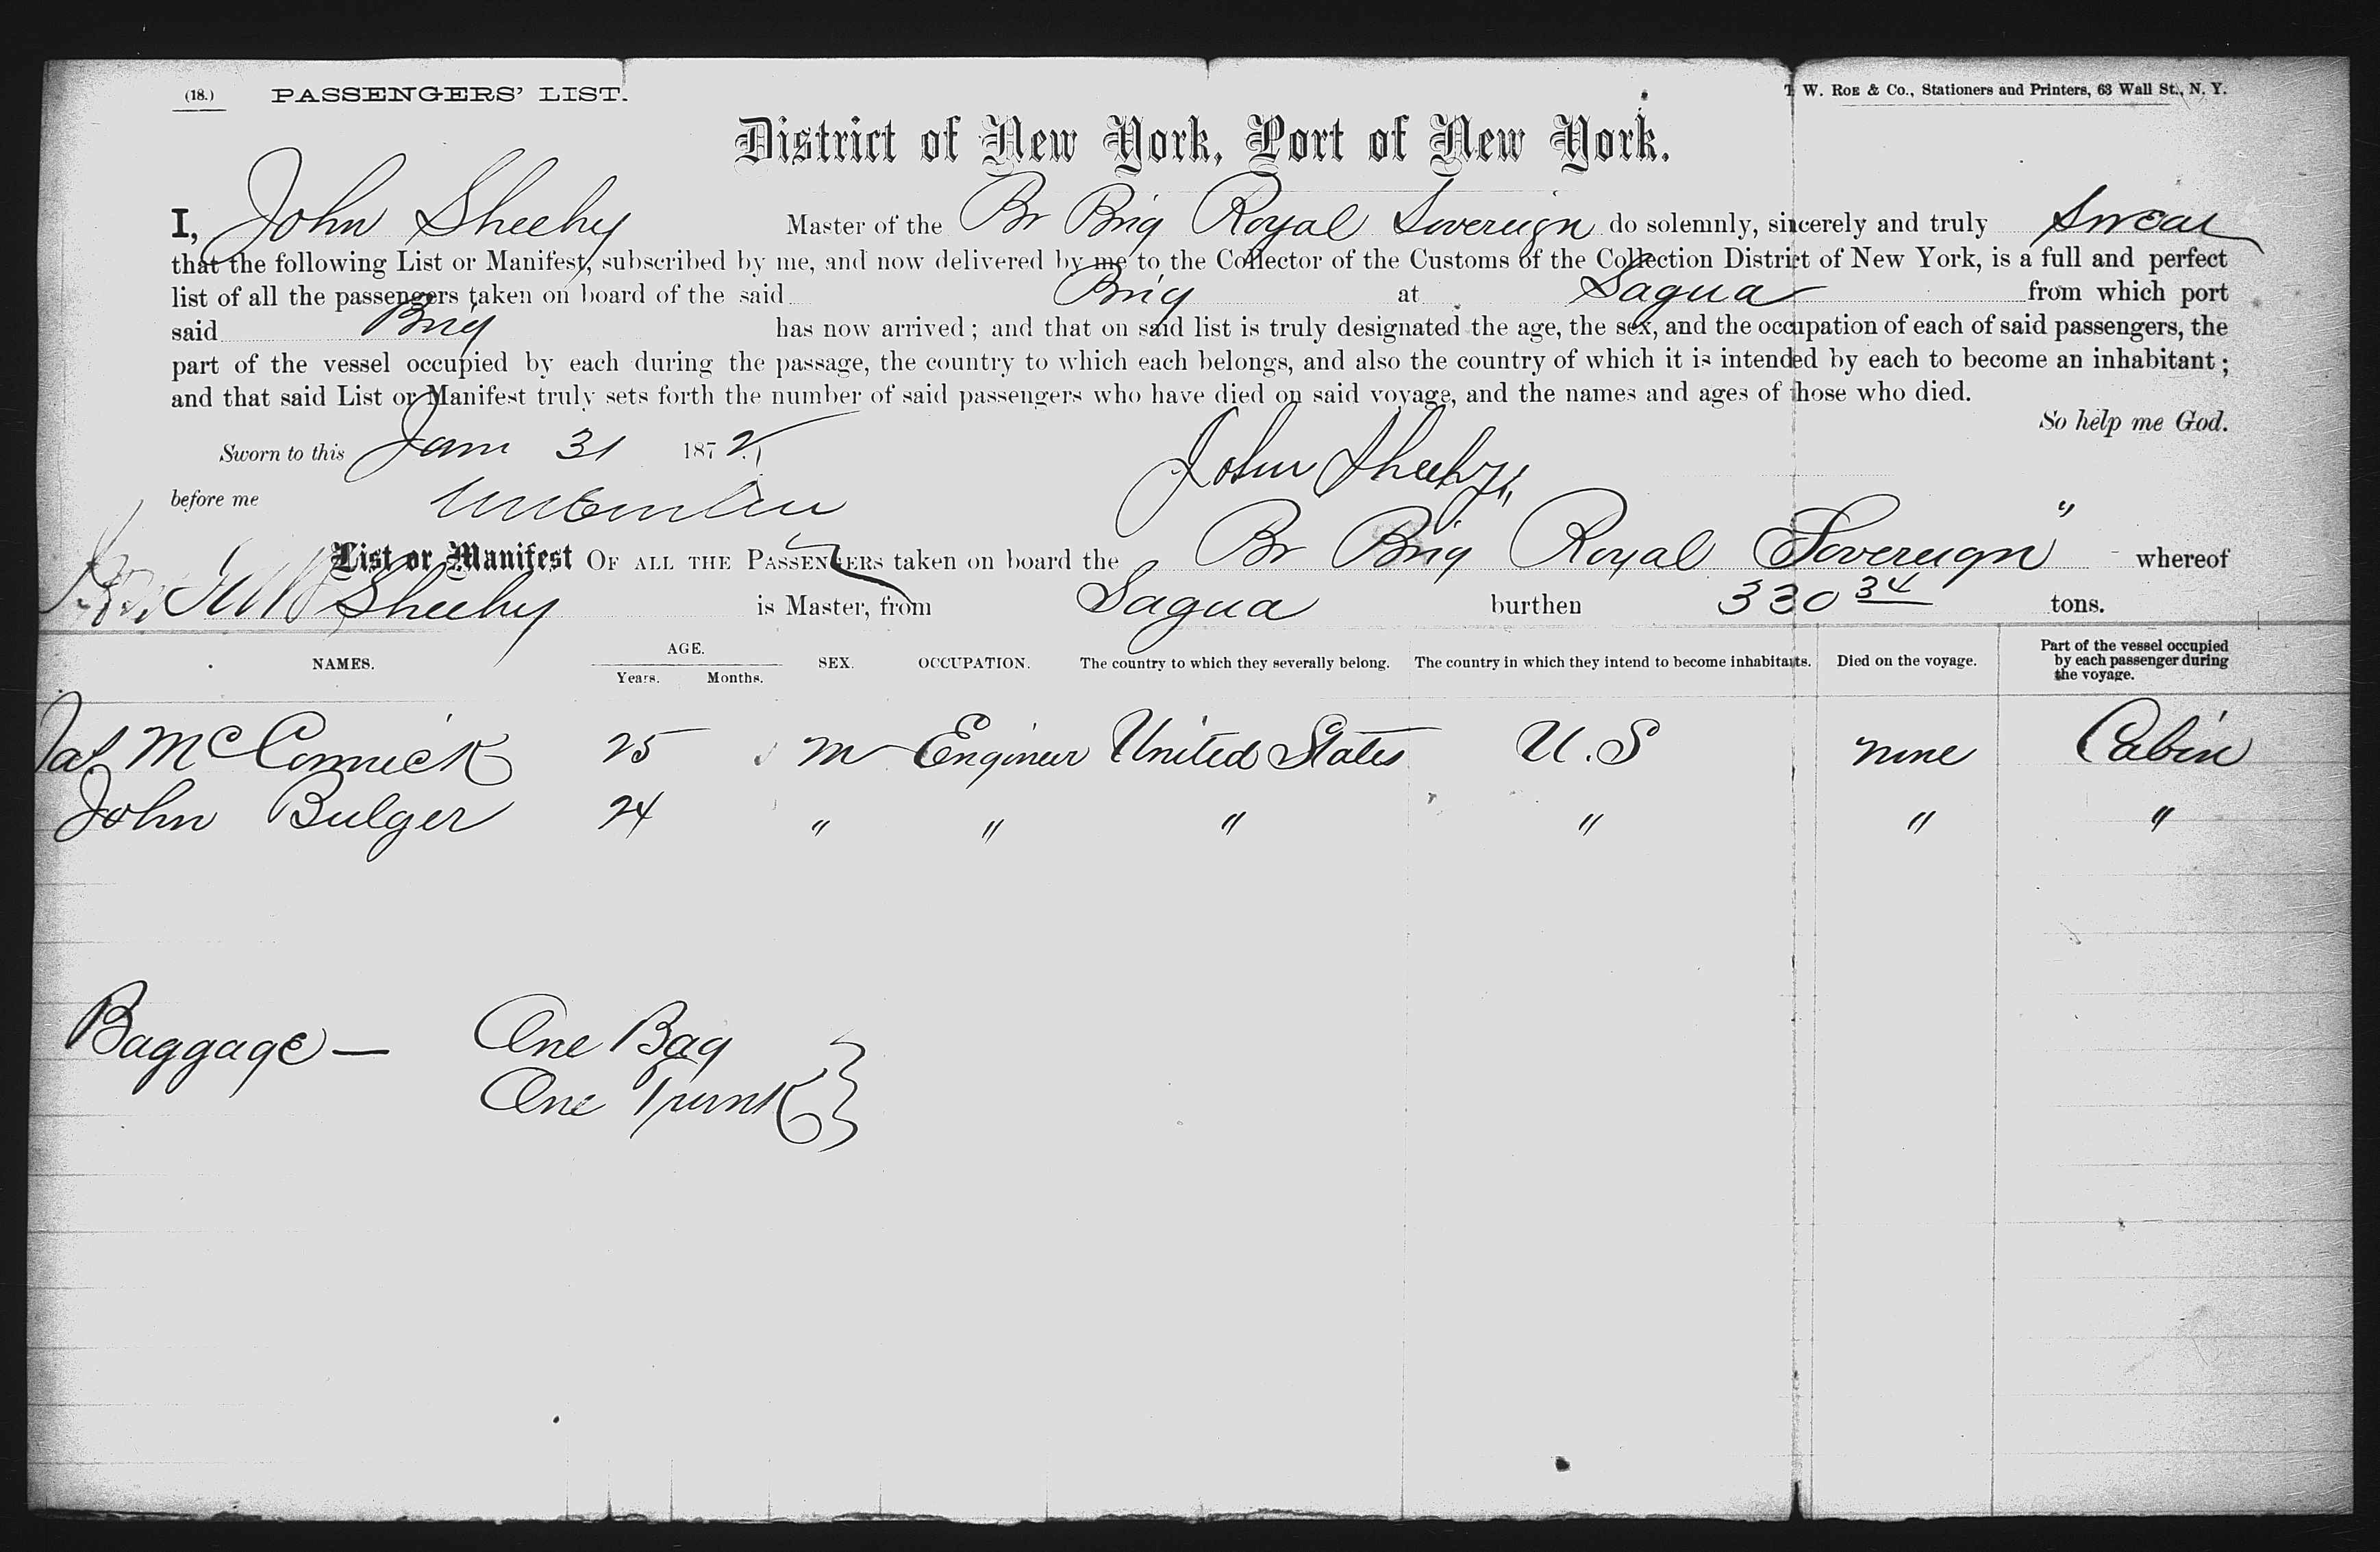 (18.) PASSENGERS' LIST. T. W. ROE & Co., Stationers and Printers, 63 Wall St., N. Y.
District of New York, Port of New York.
I, John Sheehy Master of the Br Brig Royal Sovereign do solemnly, sincerely and truly Swear
that the following List or Manifest, subscribed by me, and now delivered by me to the Collector of the Customs of the Collection District of New York, is a full and perfect
list of all the passengers taken on board of the said Brig at Sagua from which port
said Brig has now arrived; and that on said list is truly designated the age, the sex, and the occupation of each of said passengers, the
part of the vessel occupied by each during the passage, the country to which each belongs, and also the country of which it is intended by each to become an inhabitant;
and that said List or Manifest truly sets forth the number of said passengers who have died on said voyage, and the names and ages of those who died.
So help me God.
Sworn to this Jany 31 1872
John Sheehy
before me
List or Manifest OF ALL THE PASSENGERS taken on board the Br Brig Royal Sovereign " whereof
Sheehy is Master, from Sagua burthen 330 34 tons.
NAMES. AGE. Years. Months. SEX. OCCUPATION. The country to which they severally belong. The country in which they intend to become inhabitants. Died on the voyage. Part of the vessel occupied by each passenger during the voyage.
Jas McCormick 25 M Engineer United States U.S none Cabin
John Bulger 24 " " " " " "
Baggage — One Bag
One Trunk